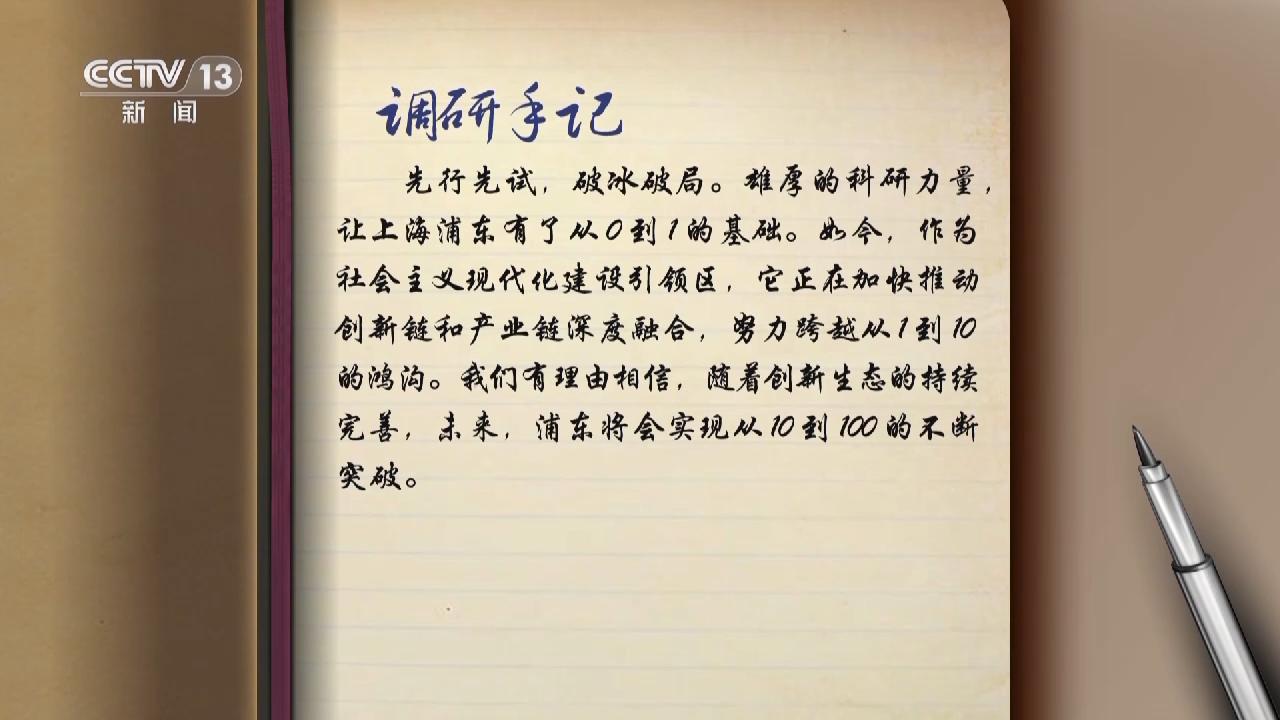 CCTV 13
新闻
调研手记
先行先试，破冰破局。雄厚的科研力量，
让上海浦东有了从0到1的基础。如今，作为
社会主义现代化建设引领区，它正在加快推动
创新链和产业链深度融合，努力跨越从1到10
的鸿沟。我们有理由相信，随着创新生态的持续
完善，未来，浦东将会实现从10到100的不断
突破。